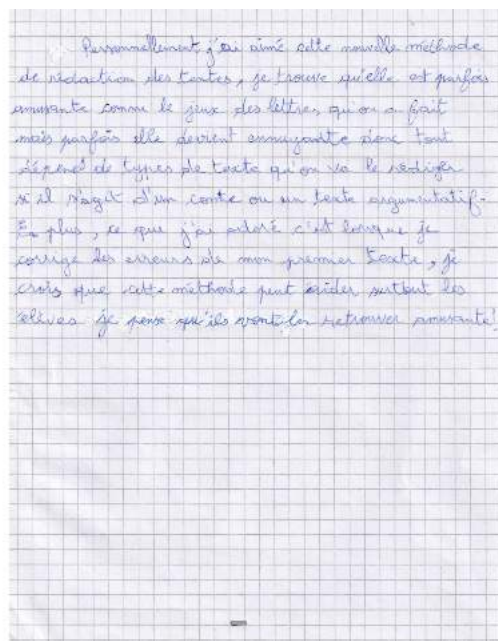 Personnellement, j'ai aimé cette nouvelle méthode
de rédaction des textes, je trouve qu'elle est parfois
amusante comme le jeux des lettres qu'on a fait
mais parfois elle devient ennuyante donc tout
dépend de types de texte qu'on va le rediger
si il s'agit d'un conte ou un texte argumentatif.
En plus, ce que j'ai adoré c'est lorsque je
corrige les erreurs de mon premier texte, je
crois que cette méthode peut aider surtout les
élèves je pense qu'ils vont la retrouver amusante!